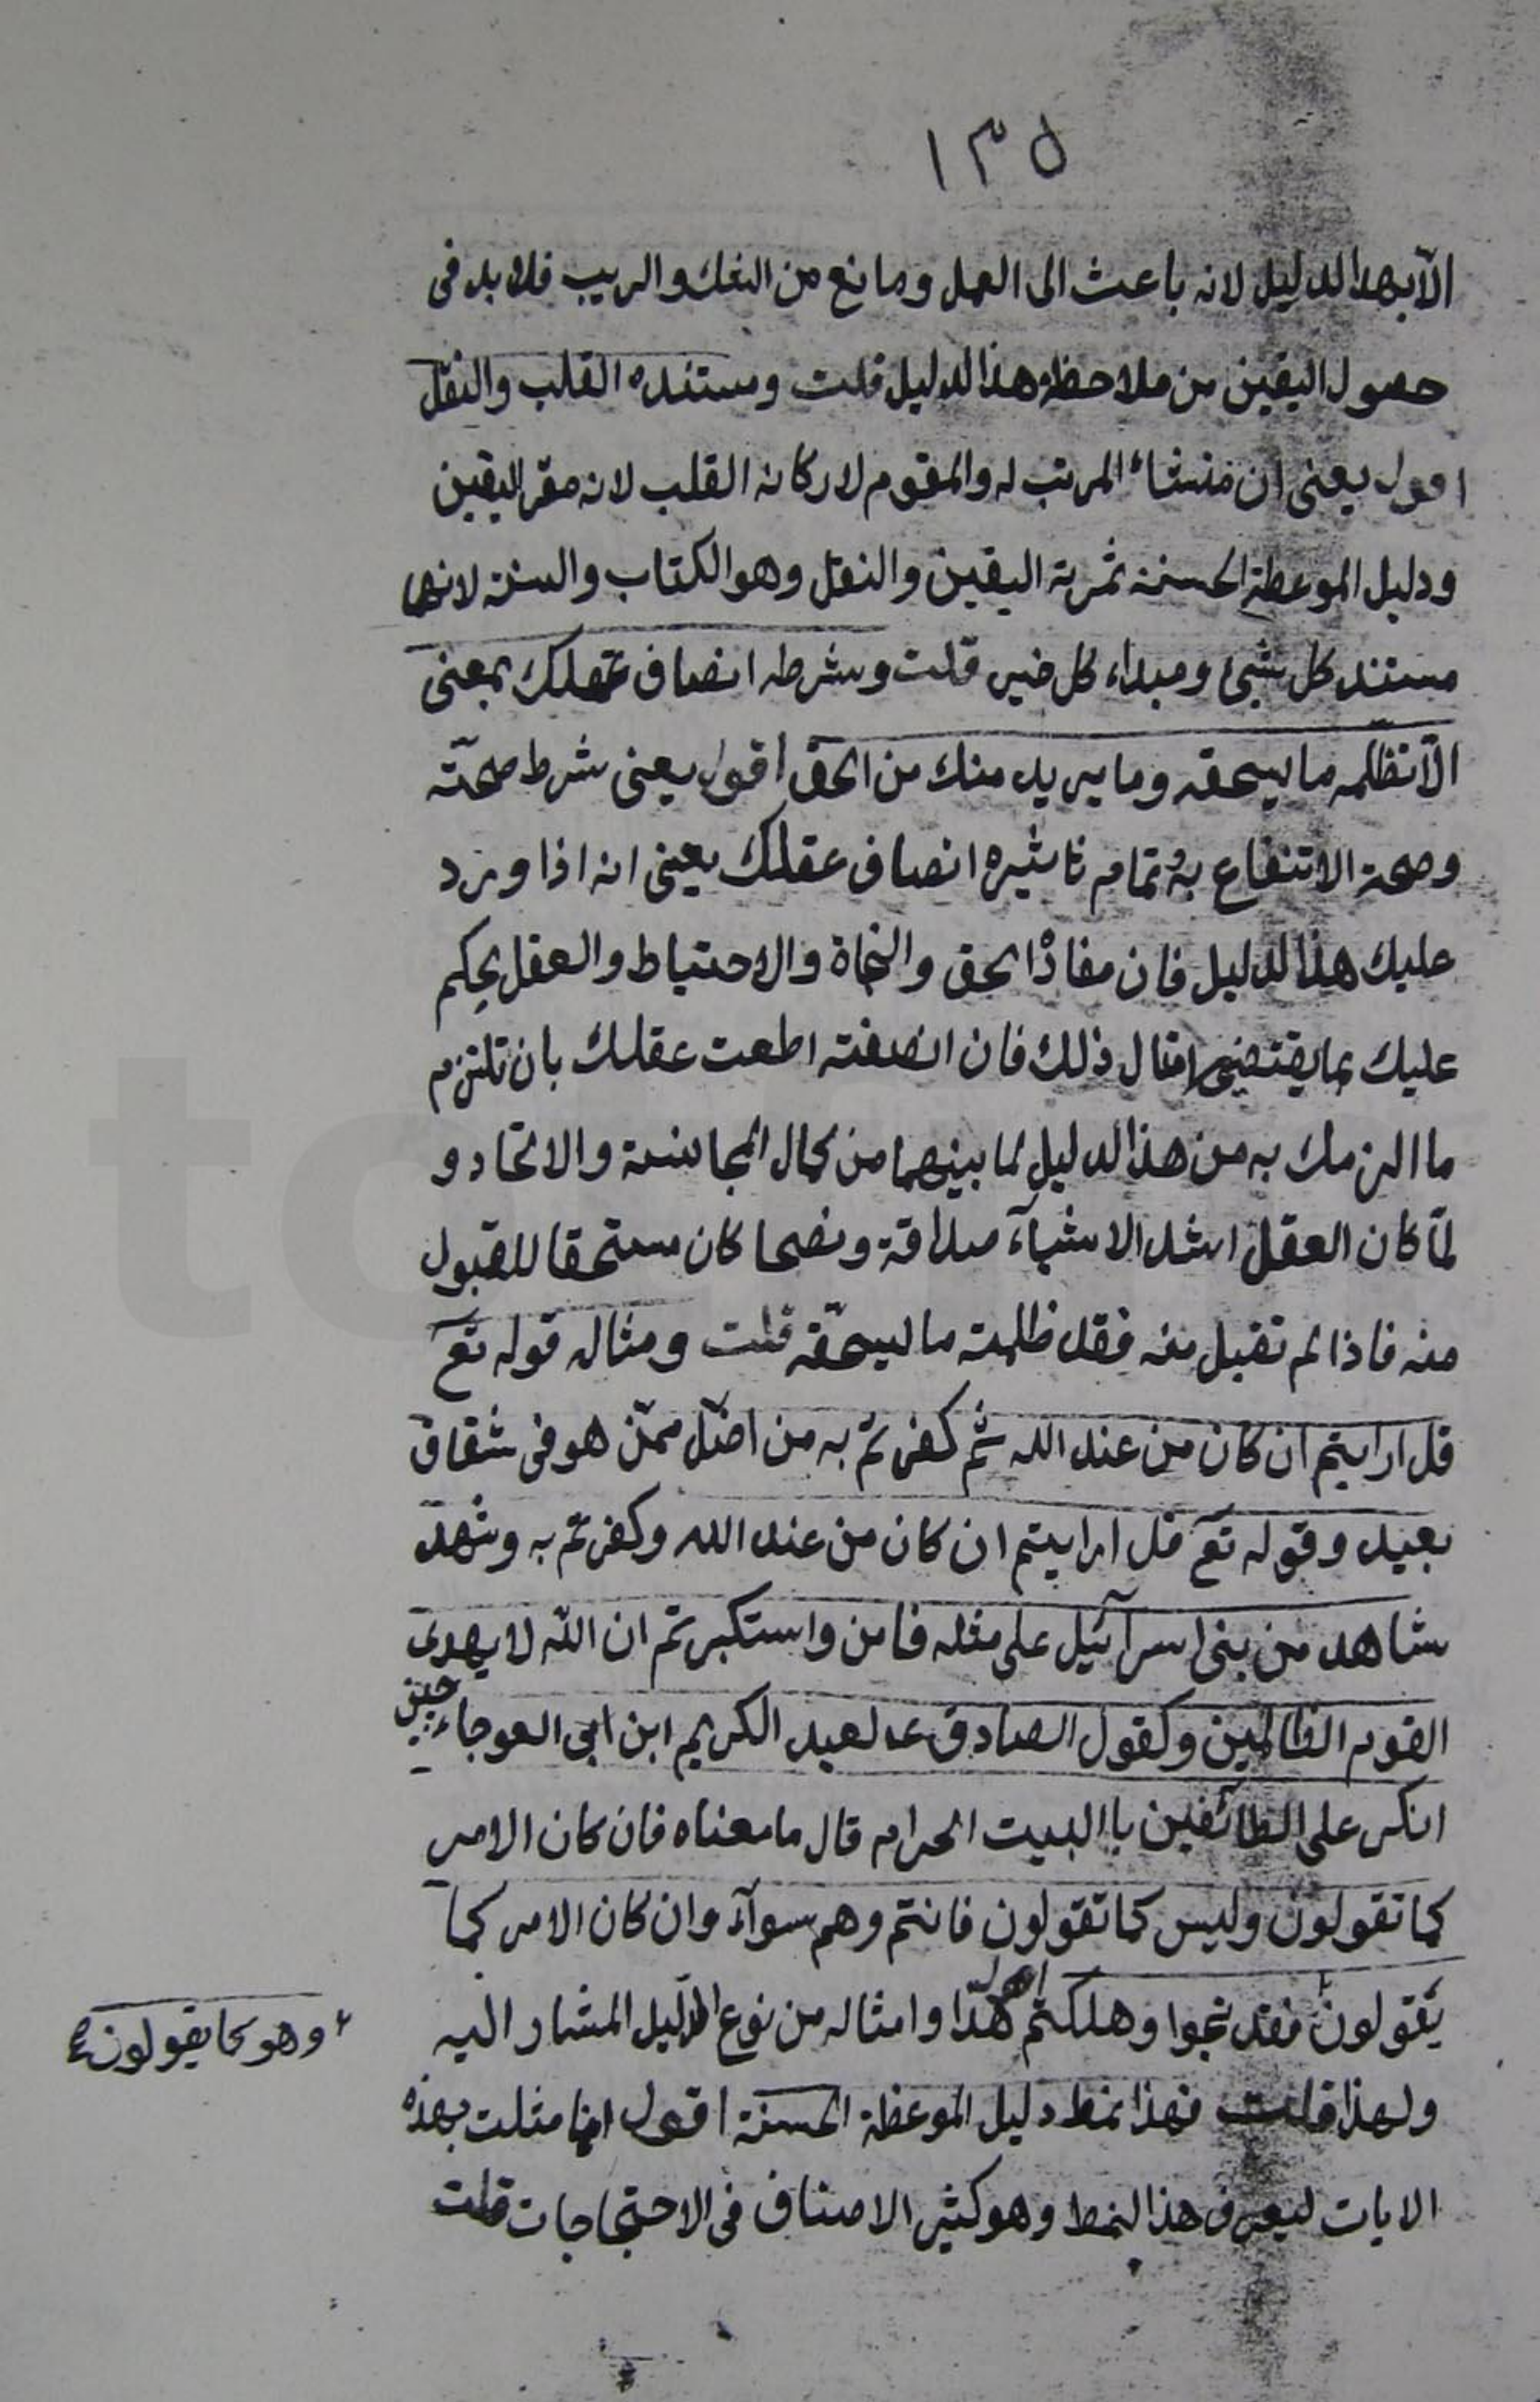 ١٣٥
الّا بهذا الدليل لانه باعث الى العمل ومانع من الشك والريب فلا بد فى
حصول اليقين من ملاحظة هذا الدليل قلت ومستنده القلب والنقل
اقول يعنى ان منشاء المرتب له والمقوم لاركانه القلب لانه مقرّ اليقين
ودليل الموعظة الحسنة ثمرته اليقين والنقل وهو الكتاب والسنة لانهما
مستند كل شيئ ومبداء كل خير قلت وشرطه انصاف عقلك بمعنى
الّا تظلمه ما يستحقه وما يريد منك من الحق اقول يعنى شرط صحّته
وصحة الانتفاع به وتمام تاثيره انصاف عقلك يعنى انه اذا ورد
عليك هذا الدليل فان مفاده الحق والنجاة والاحتياط والعقل يحكم
عليك بما يقتضى امثال ذلك فان انصفته اطعت عقلك بان تلتزم
ما الزمك به من هذا الدليل لما بينهما من كمال المجانسة والاتحاد و
لمّا كان العقل اشد الاشيآء صداقة ونصحا كان مستحقا للقبول
منه فاذا لم تقبل منه فقد ظلمته ما يستحقّه قلت ومثاله قوله تع
قل ارايتم ان كان من عند الله ثم كفرتم به من اضلّ ممّن هو فى شقاق
بعيد وقوله تع قل ارايتم ان كان من عند الله وكفرتم به وشهد
شاهد من بنى اسرآئيل على مثله فامن واستكبرتم ان اللّه لا يهدى
القوم الظالمين وكقول الصادق ع لعبد الكريم ابن ابى العوجاء حين
انكر على الطائفين باالبيت الحرام قال ما معناه فان كان الامر
كما تقولون وليس كما تقولون فانتم وهم سوآء وان كان الامر كما
يقولون فقد نجوا وهلكتم اقول هذا وامثاله من نوع الدّليل المشار اليه
وهو كما يقولون
ولهذا قلت فهذا نمط دليل الموعظة الحسنة اقول انما مثلت بهذه
الايات ليعرف هذا النمط وهو كثير الاصناف فى الاحتجاجات قلت